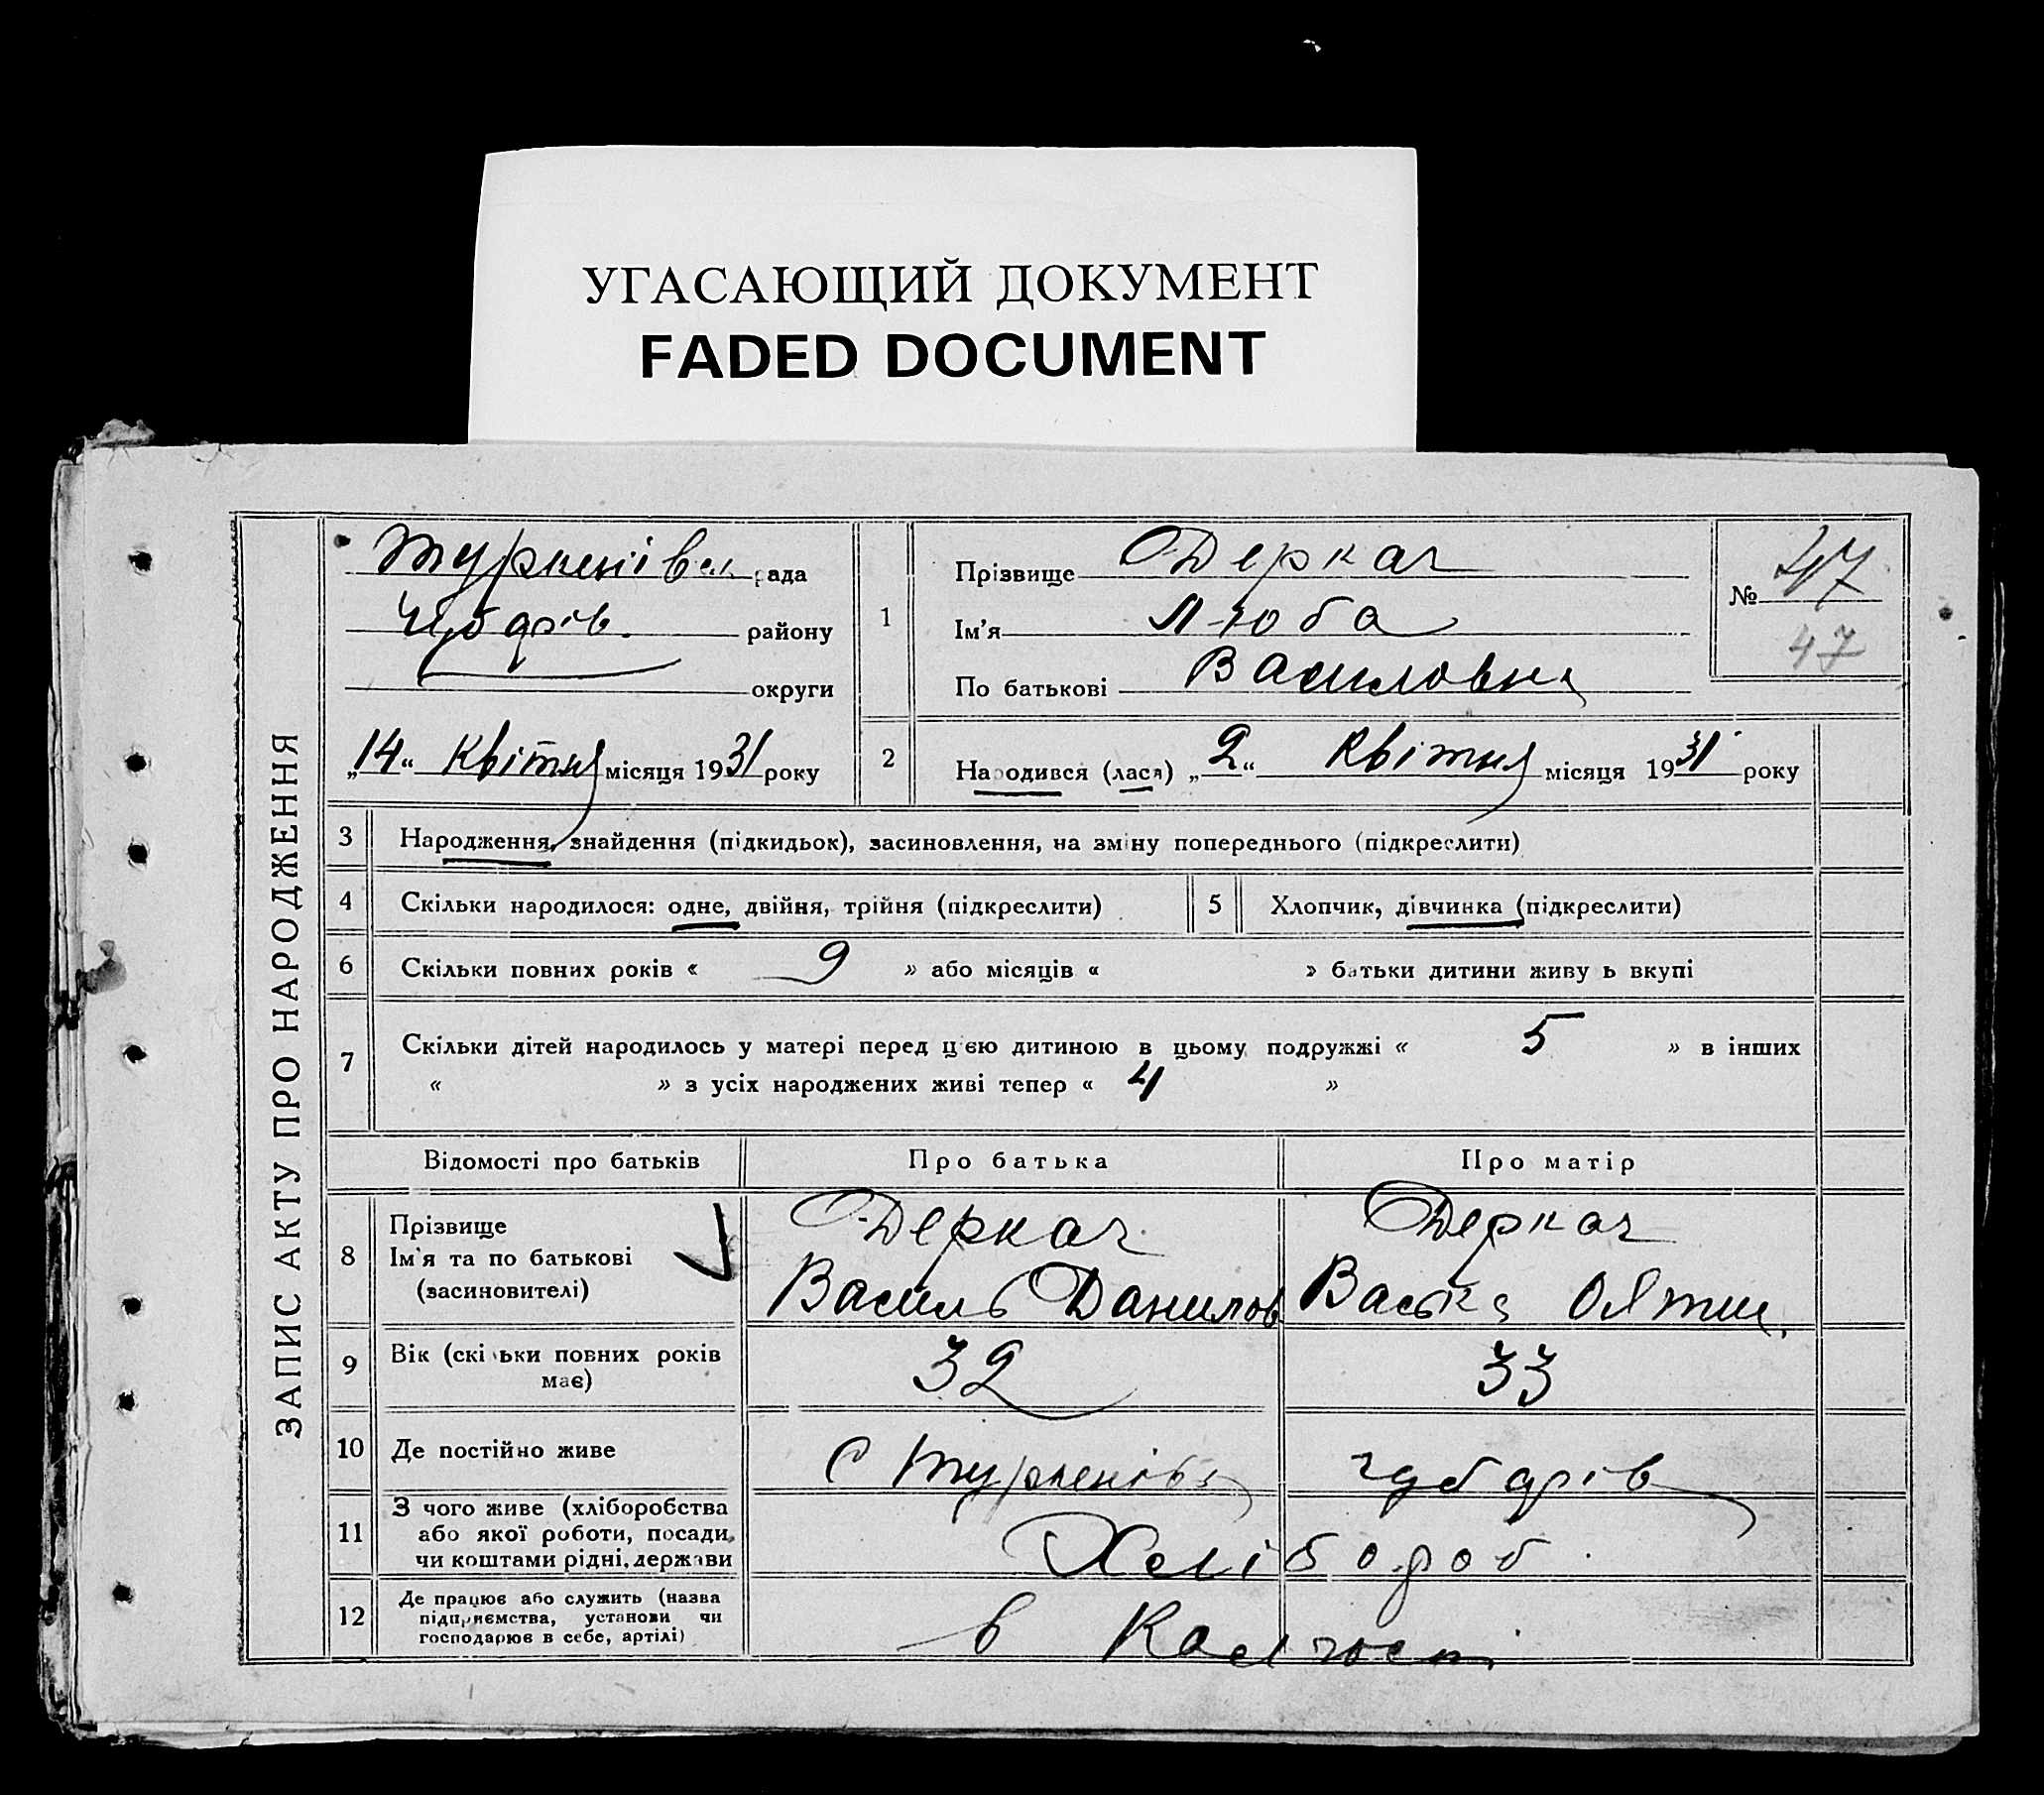 УГАСАЮЩИЙ ДОКУМЕНТ
FADED DOCUMENT
ЗАПИС АКТУ ПРО НАРОДЖЕННЯ
Туркенівськ рада
Чубарів. району
округи
„14“ Квітня місяця 1931 року
1
Прізвище Деркач
Ім'я Люба
По батькові Василовна
№ 47
47
2
Народився (лася) „2“ Квітня місяця 1931 року
3 Народження, знайдення (підкидьок), засиновлення, на зміну попереднього (підкреслити)
4 Скільки народилося: одне, двійня, трійня (підкреслити)
5 Хлопчик, дівчинка (підкреслити)
6 Скільки повних років « 9 » або місяців « » батьки дитини живу ь вкупі
7 Скільки дітей народилось у матері перед цією дитиною в цьому подружжі « 5 » в інших
« » з усіх народжених живі тепер « 4 »
Відомості про батьків Про батька Про матір
8 Прізвище
Ім'я та по батькові
(засиновителі)
Деркач
Василь Данилов
Деркач
9 Вік (скі ьки повних років
має)
32 33
10 Де постійно живе
с Туркенівка Чубарів
11 З чого живе (хліборобства
або якої роботи, посади,
чи коштами рідні, держави
Хлібороб
12 Де працює або служить (назва
підприємства, установи чи
господарює в себе, артілі)
в